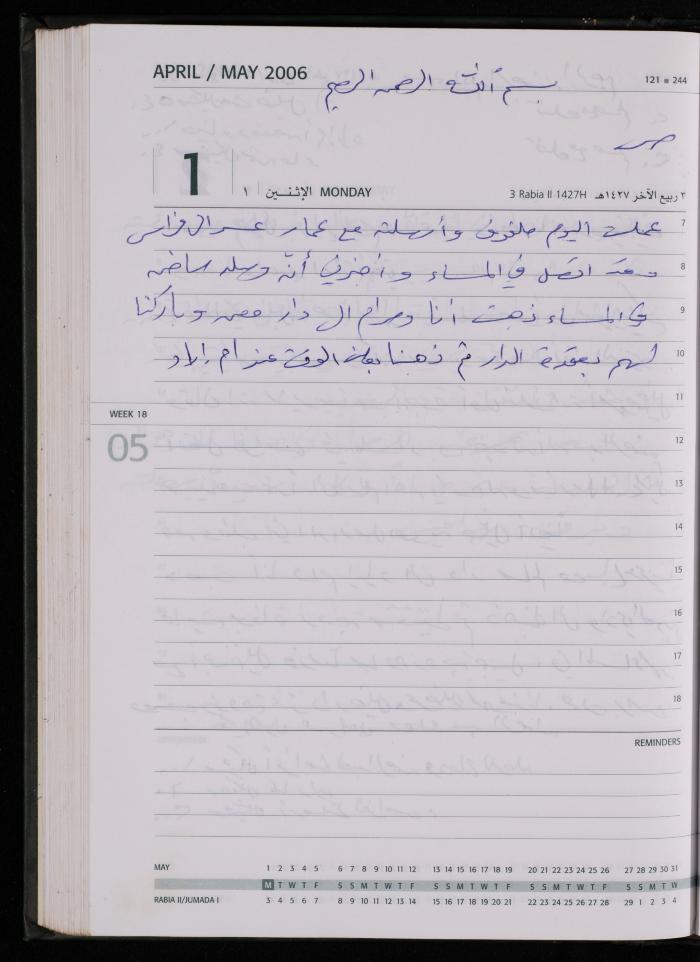 APRIL / MAY 2006
بسم الله الرحمن الرحيم
121 ■ 244
1
١ الإثنين MONDAY
3 Rabia II 1427H ٣ ربيع الآخر ١٤٢٧هـ
7
عملت اليوم ملفوف وأرسلته مع عمار
8
وقد اتصل في المساء و أخبرني أنّه وصله ساخن
9
في المساء ذهبت أنا ومرام الى دار وباركنا
10
لهم بعقدة الدار ثم ذهبنا الوقت عند أم
11
WEEK 18
05
12
13
14
15
16
17
18
REMINDERS
MAY 1 2 3 4 5 6 7 8 9 10 11 12 13 14 15 16 17 18 19 20 21 22 23 24 25 26 27 28 29 30 31
M T W T F S S M T W T F S S M T W T F S S M T W T F S S M T W
RABIA II/JUMADA I 3 4 5 6 7 8 9 10 11 12 13 14 15 16 17 18 19 20 21 22 23 24 25 26 27 28 29 1 2 3 4